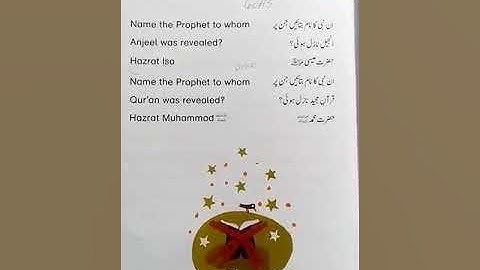 Name the Prophet to whom
ان نبی کا نام بتائیں جن پر
Anjeel was revealed?
انجیل نازل ہوئی؟
Hazrat Isa
حضرت عیسیٰ
Name the Prophet to whom
ان نبی کا نام بتائیں جن پر
Qur'an was revealed?
قرآن مجید نازل ہوئی؟
Hazrat Muhammad
حضرت محمد